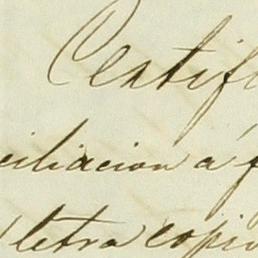 Certif
ciliacion á f
letra copi